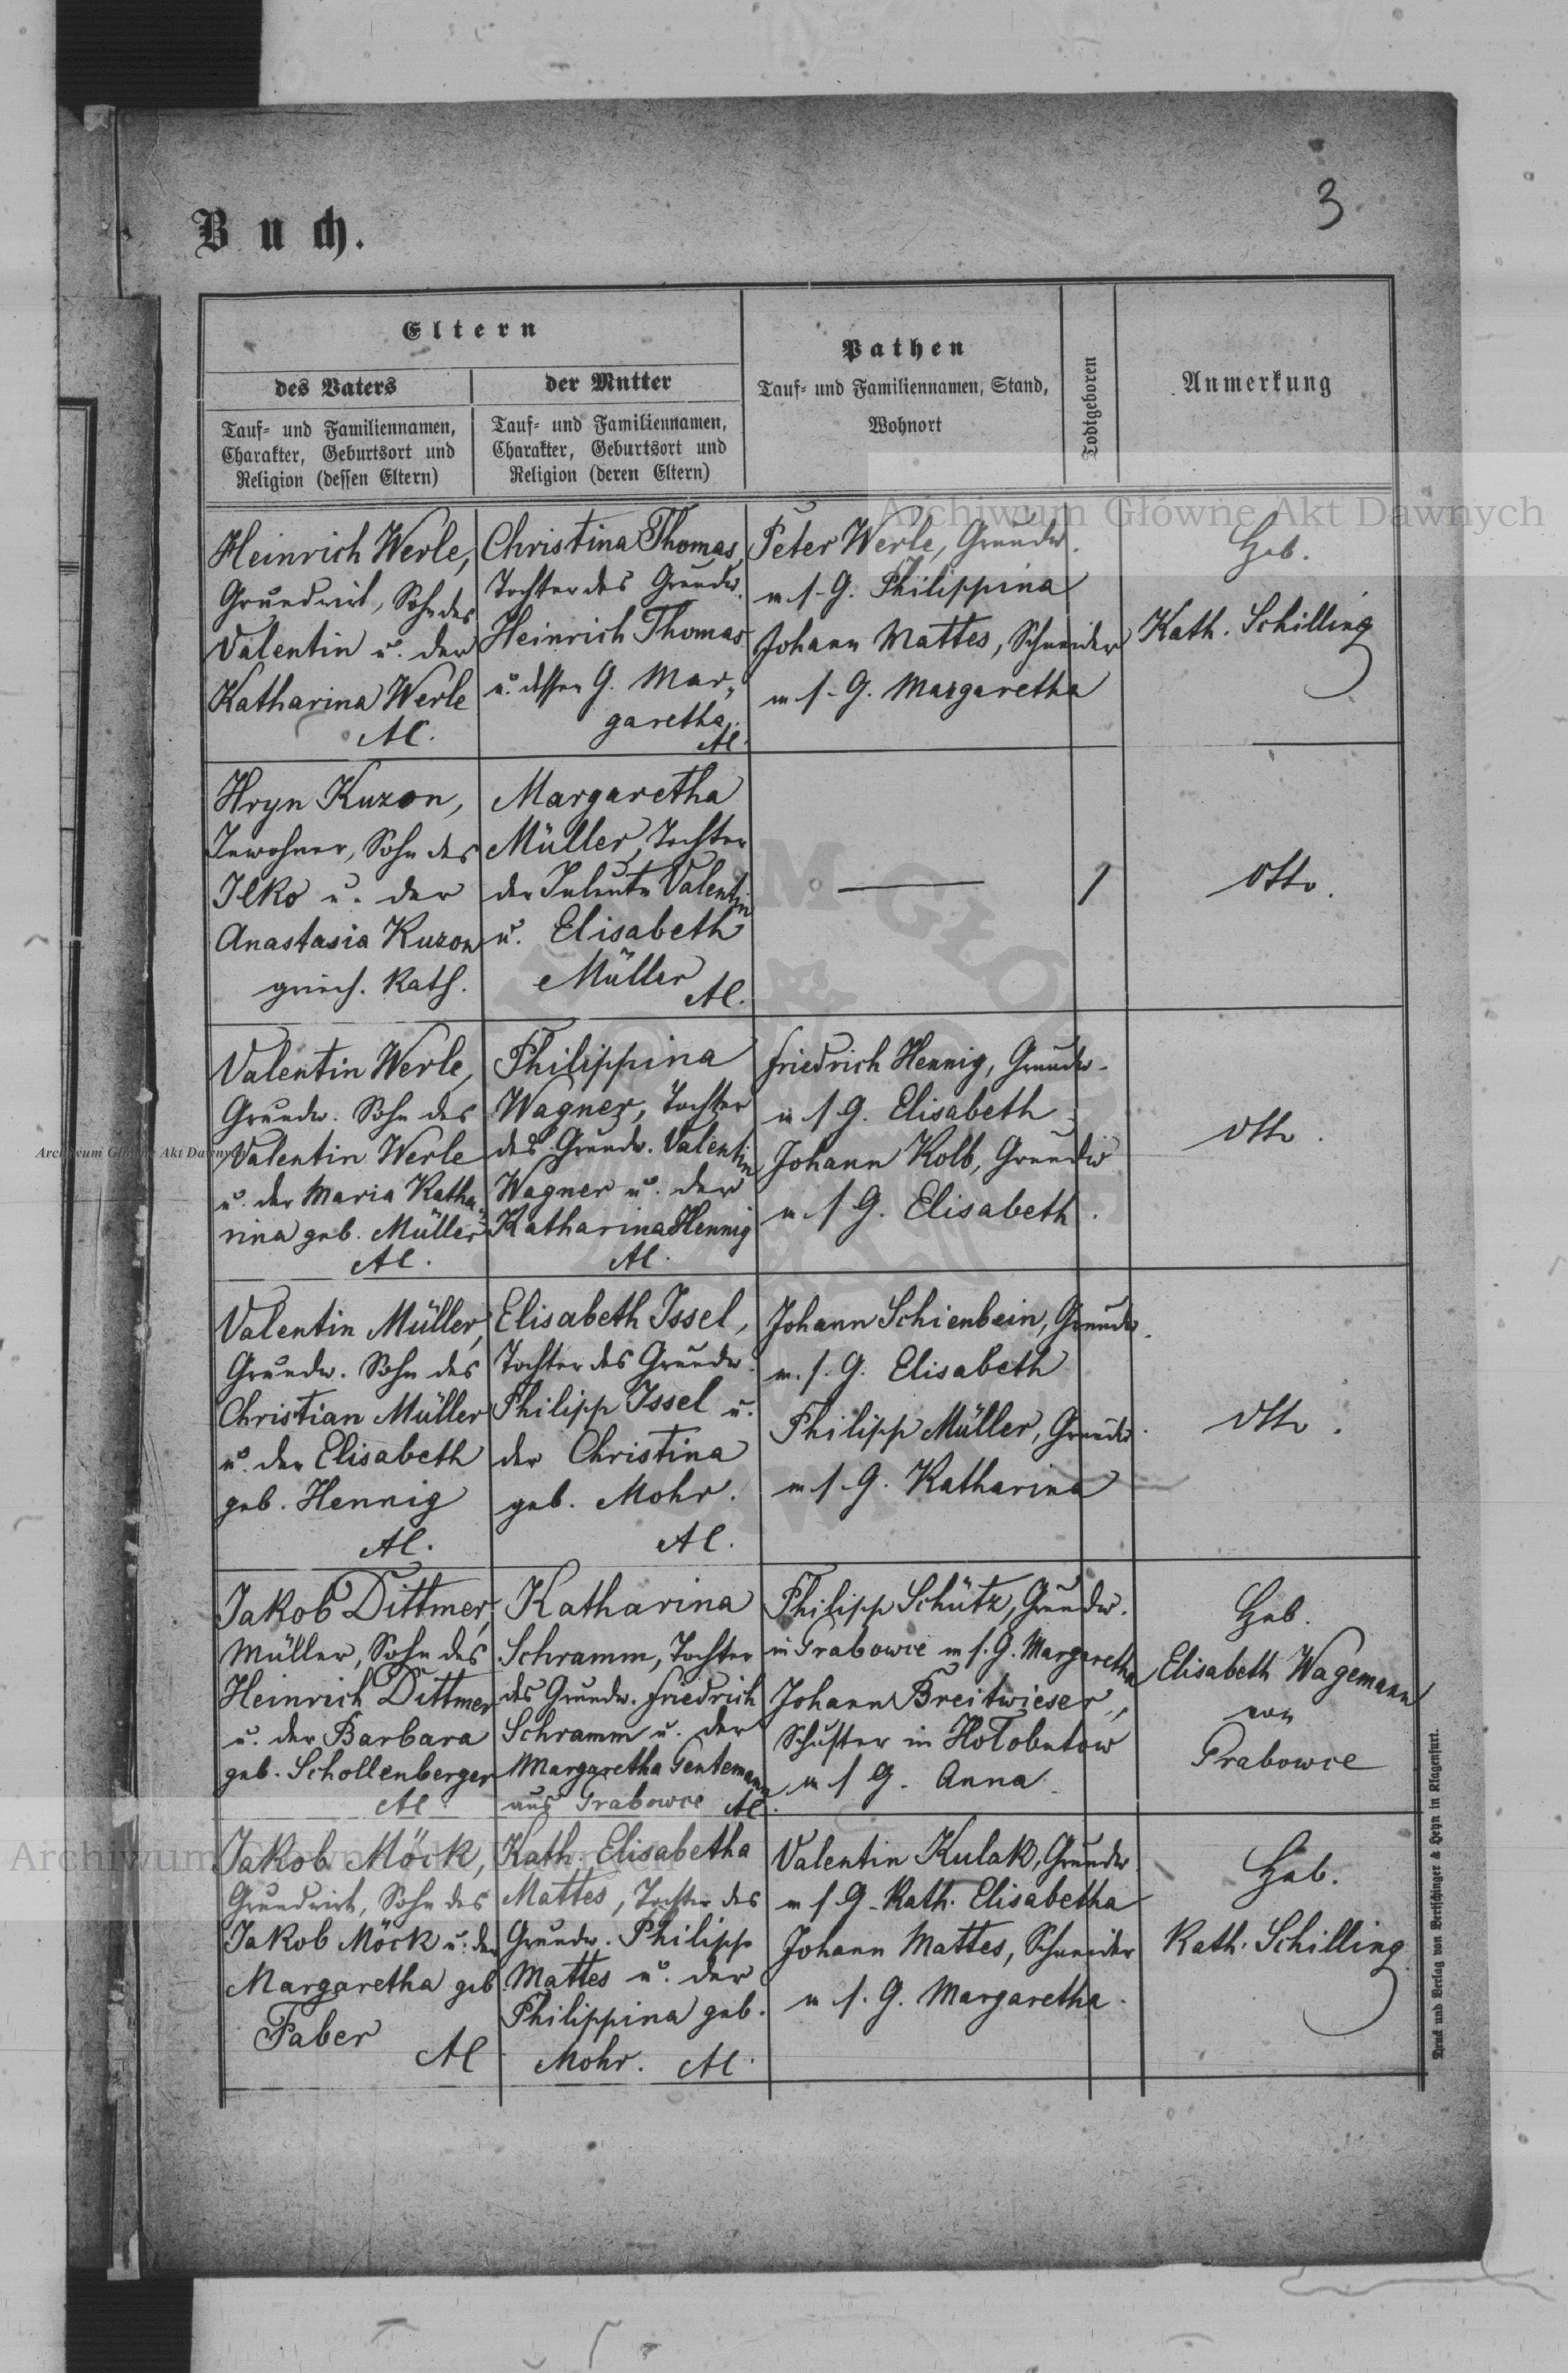 3
Buch.
Eltern
des Vaters
Tauf- und Familiennamen,
Charakter, Geburtsort und
Religion (dessen Eltern)
der Mutter
Tauf- und Familiennamen,
Charakter, Geburtsort und
Religion (deren Eltern)
Pathen
Tauf- und Familiennamen, Stand,
Wohnort
Todtgeboren
Anmerkung
Archiwum Główne Akt Dawnych
Heinrich Werle,
Grundwirt, Sohn des
Valentin u. der
Katharina Werle
AC.
Christina Thomas,
Tochter des Grundw.
Heinrich Thomas
u. dessen G. Mar-
garetha.
AC.
Peter Werle, Grundw.
u. s. G. Philippina
Johann Mattes, Schneider
u. s. G. Margaretha
Heb.
Kath. Schilling
Hryn Kuzon,
Inwohner, Sohn des
Ilko u. der
Anastasia Kuzon
griech. Kath.
Margaretha
Müller, Tochter
der Inleute Valentin
u. Elisabeth
Müller
AC.
—
1
dtto.
Valentin Werle,
Grundw. Sohn des
Valentin Werle
u. der Maria Katha-
rina geb. Müller
AC.
Philippina
Wagner, Tochter
des Grundw. Valentin
Wagner u. der
Katharina Hennig
AC.
Friedrich Hennig, Grundw.
u. s. G. Elisabeth
Johann Kolb, Grundw
u. s. G. Elisabeth.
dtto.
Archiwum Główne Akt Dawnych
Valentin Müller,
Grundw. Sohn des
Christian Müller
u. der Elisabeth
geb. Hennig
AC.
Elisabeth Issel,
Tochter des Grundw.
Philipp Issel u.
der Christina
geb. Mohr.
AC.
Johann Schienbein, Grundw.
u. s. G. Elisabeth
Philipp Müller, Grundw.
u. s. G. Katharina
dtto.
Jakob Dittmer,
Müller, Sohn des
Heinrich Dittmer
u. der Barbara
geb. Schollenberger
AC
Katharina
Schramm, Tochter
des Grundw. Friedrich
Schramm u. der
Margaretha Gentemann
aus Grabowce AC.
Philipp Schütz, Grundw.
in Grabowce u. s. G. Margaretha
Johann Breitwieser,
Schuster in Hołobutow
u. s. G. Anna
Heb.
Elisabeth Wagemann
von
Grabowce
Jakob Möck,
Grundwirt, Sohn des
Jakob Möck u. der
Margaretha geb
Faber
AC
Kath. Elisabetha
Mattes, Tochter des
Grundw. Philipp
Mattes u. der
Philippina geb.
Mohr. AC.
Valentin Kulak, Grundw.
u. s. G. Kath. Elisabetha
Johann Mattes, Schneider
u. s. G. Margaretha.
Heb.
Kath. Schilling
Archiwum Główne Akt Dawnych
Druck und Verlag von Bertschinger & Heyn in Klagenfurt.